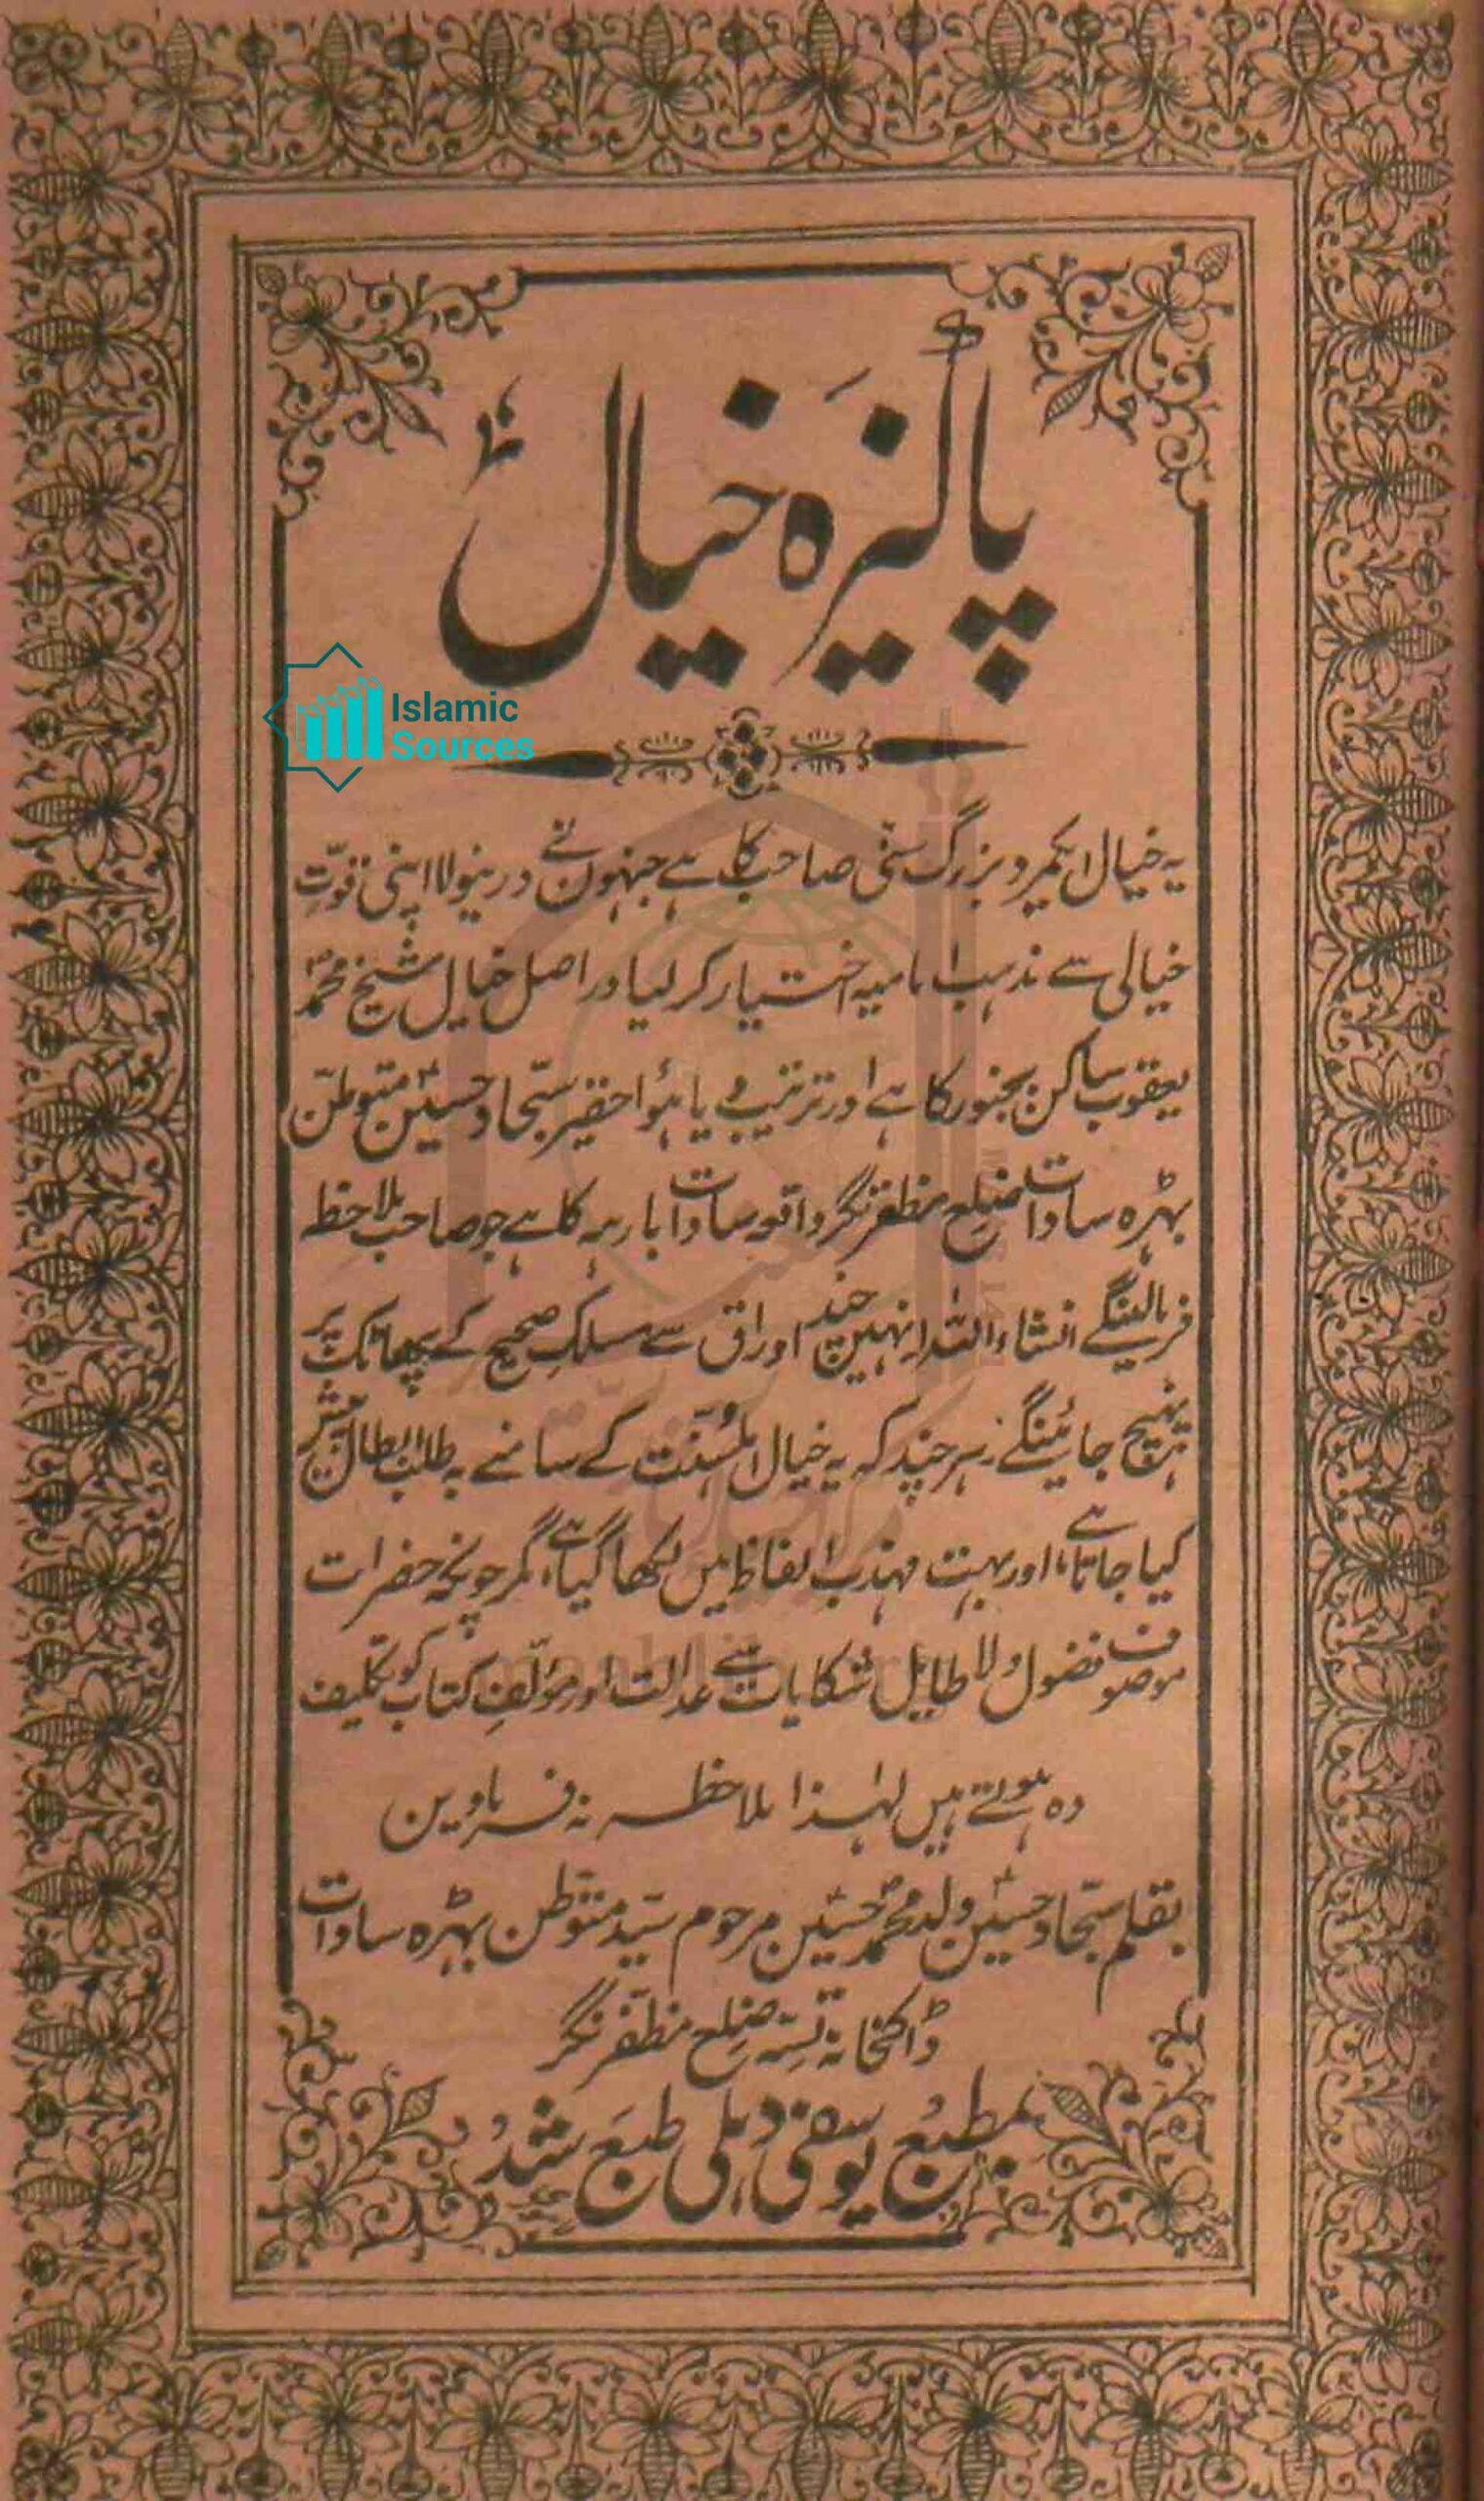 پاکیزہ خیال
Islamic
Sources
یہ خیال ایکمرد بزرگ سنّی صاحب کا ہے جنہوں نے درینولا اپنی قوّتِ
خیالی سے مذہب امامیہ اختیار کر لیا اور اصل خیال شیخ محمد
یعقوب ساکن بجنور کا ہے اور ترتیب دیا ہؤا احقر سجّاد حسین متوطن
بہڑہ سادات ضلع مظفر نگر واقعہ سادات بارہہ کا ہے جو صاحب ملاحظہ
فرمائینگے انشاءاللہ انہیں چند اوراق سے مسلک صحیح کے پھاٹک پر
پہنچ جائینگے ہر چند کہ یہ خیال اہلسُنّت کے سامنے بہ طلب ابطال پیش
کیا جاتا ہے اور بہت مہذب الفاظ میں لکھا گیا ہے، مگر چونکہ حضرات
موصوف فضول و لا طایل شکایات سے عدالت اور مؤلفِ کتاب کو تکلیف
دہ ہوتے ہیں لہٰذا ملاحظہ نہ فرماویں
بقلم سجّاد حسین ولد محمد حسین مرحوم سیّد متوطن بہڑہ سادات
ڈاکخانہ تسّہ ضلع مظفر نگر
بمطبع یوسفی دہلی طبع شد